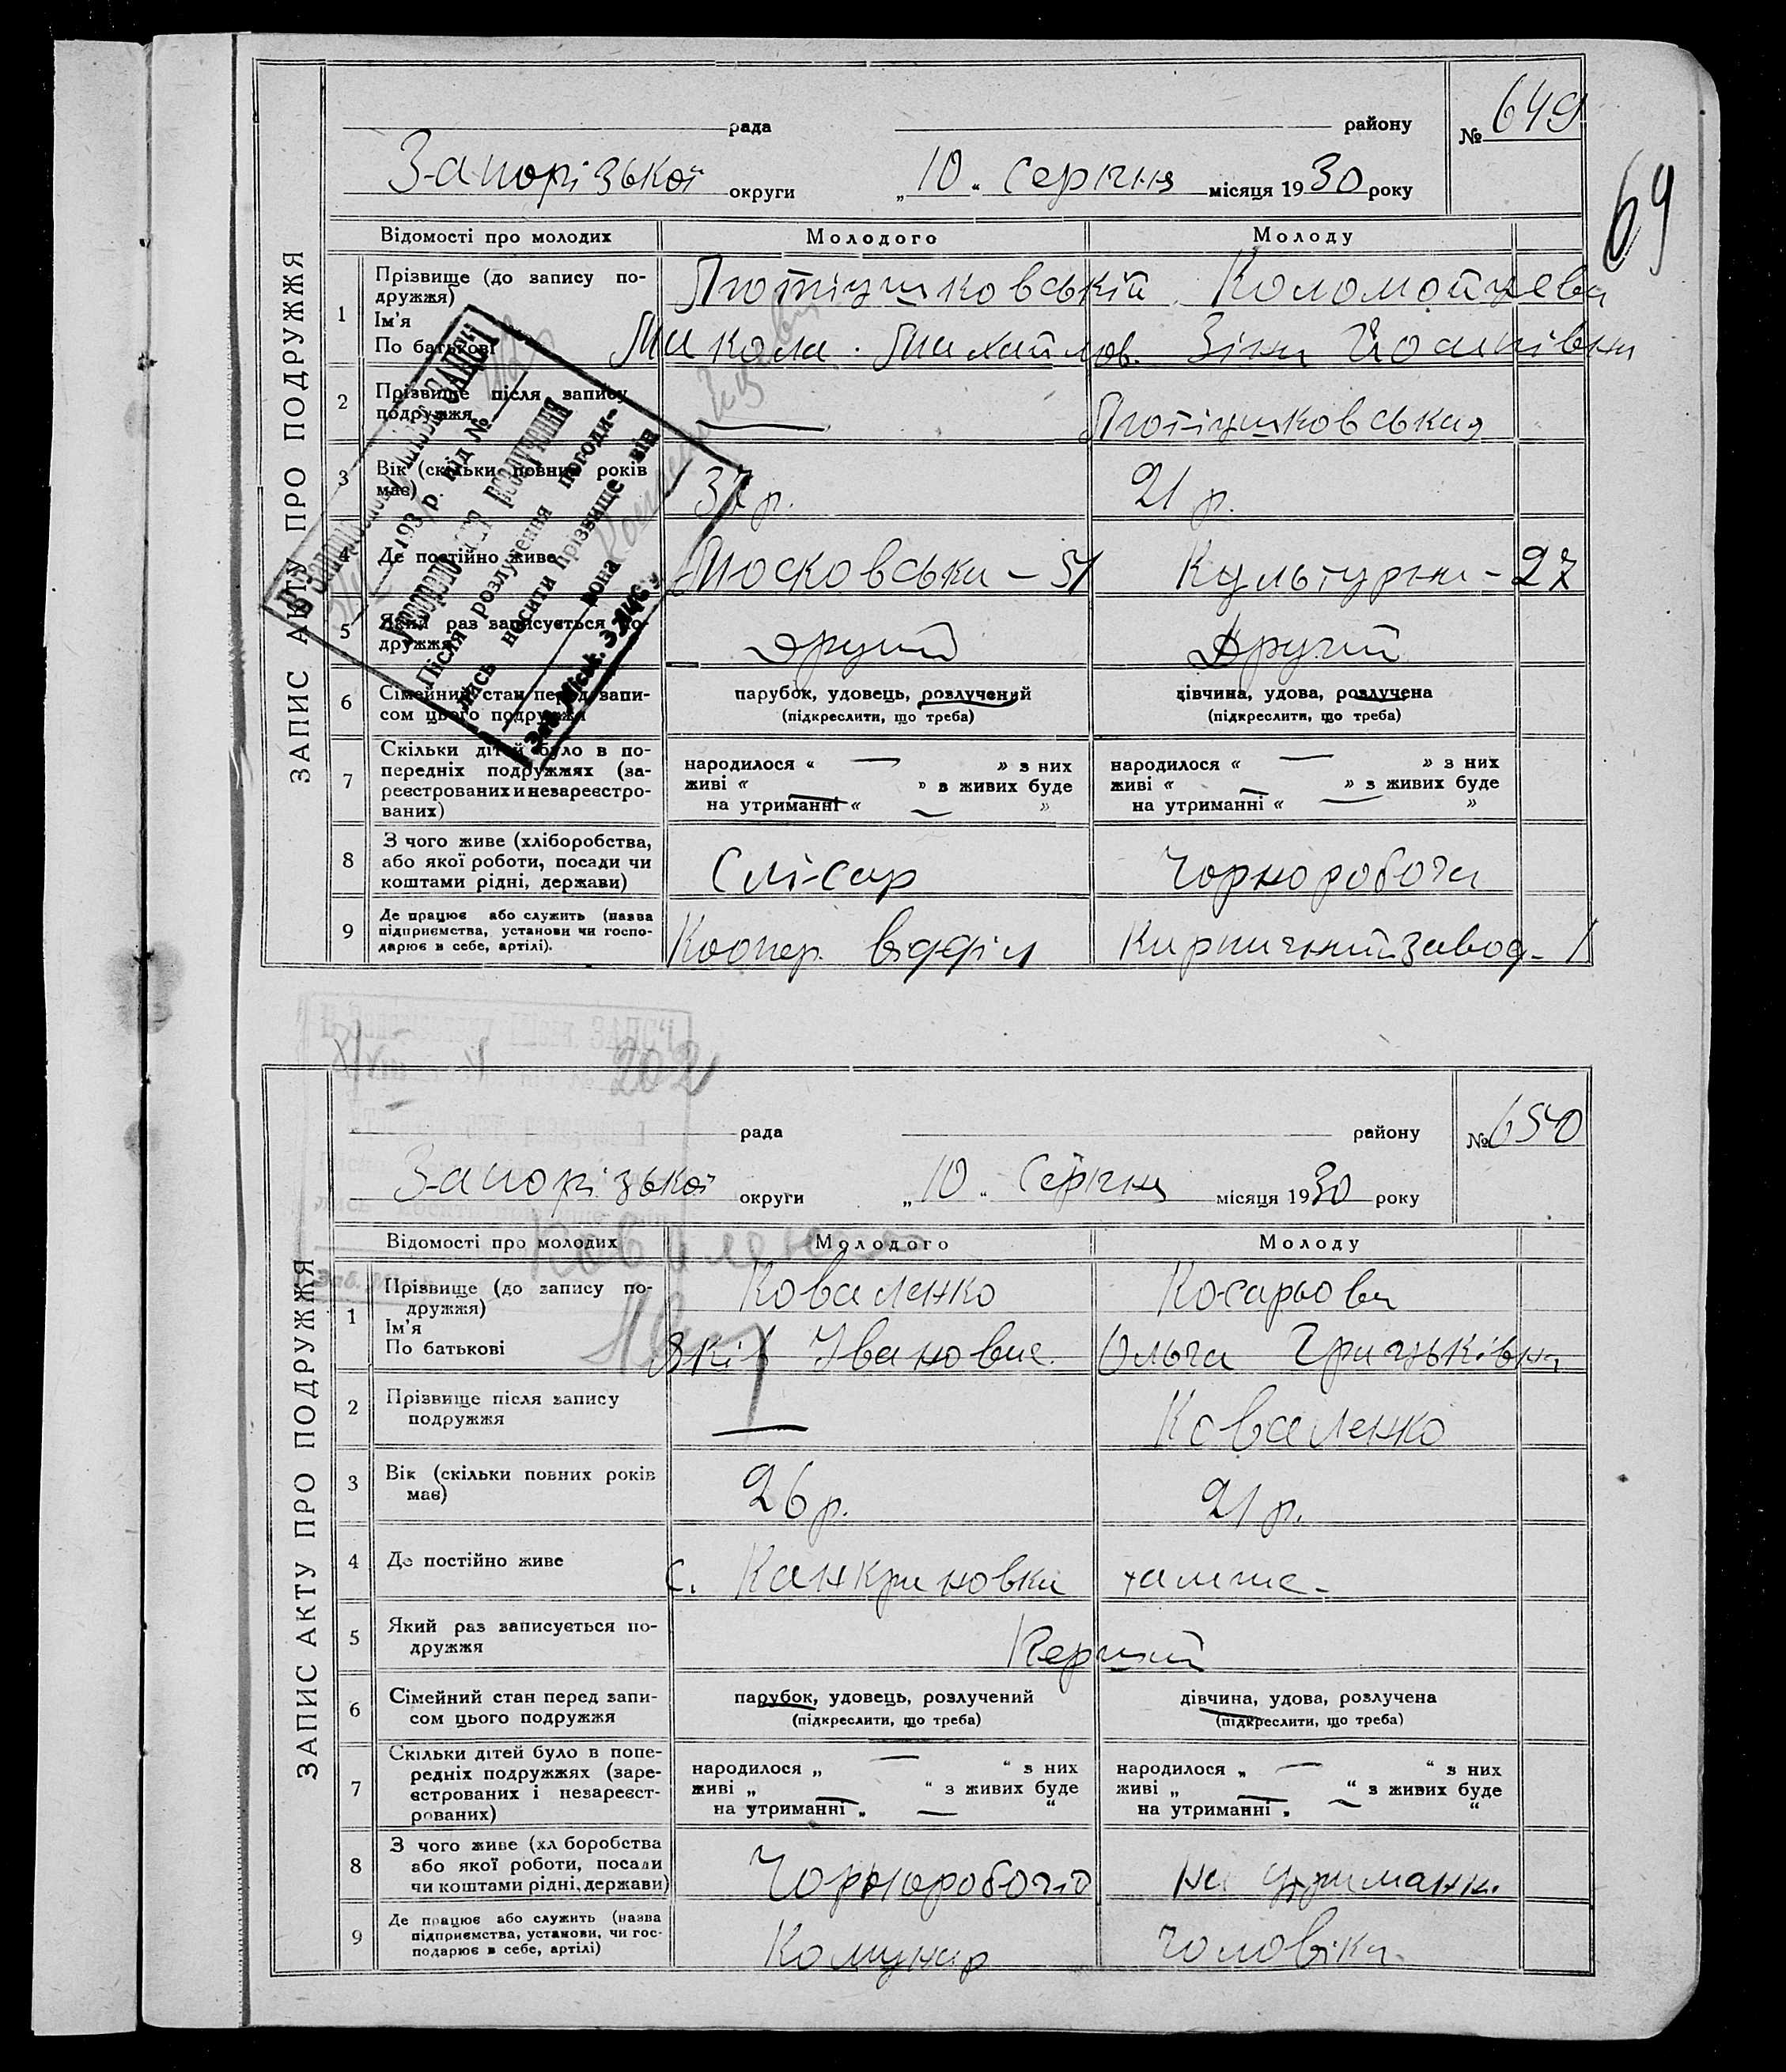 ЗАПИС АКТУ ПРО ПОДРУЖЖЯ
рада району № 649
Запорізької округи „10“ Серпня місяця 1930 року
69
Відомості про молодих Молодого Молоду
1 Прізвище (до запису по-
дружжя)
Ім'я
По батькові
Коломойцева
Микола Михайлов. Зіна
2 Прізвище після запису
подружжя
—
3 Вік (скільки повних років
має)
21 р.
4 Де постійно живе
Московська – 51 Культурна – 27
5 Який раз записується по-
дружжя
Другий Другий
6 Сімейний стан перед запи-
сом цього подружжя
парубок, удовець, розлучений
(підкреслити, що треба)
дівчина, удова, розлучена
(підкреслити, що треба)
7 Скільки дітей було в по-
передніх подружжях (за-
реєстрованих и незареєстро-
ваних)
народилося « — » з них
живі « — » з живих буде
на утриманні « — »
народилося « — » з них
живі « — » з живих буде
на утриманні « — »
8 З чого живе (хліборобства,
або якої роботи, посади чи
коштами рідні, держави)
Слісар Чорноробоча
9 Де працює або служить (назва
підприємства, установи чи госпо-
дарює в себе, артілі).
Коопер. відділ Кирпичний завод – 1
193 р. під №
Після розлучення погоди-
лись носити прізвище він
вона
Зав. Міськ. ЗАГС
202
ЗАПИС АКТУ ПРО ПОДРУЖЖЯ
рада району № 650
Запорізької округи „10“ Серпня місяця 1930 року
Коваленко
Відомості про молодих Молодого Молоду
1 Прізвище (до запису по-
дружжя)
Ім'я
По батькові
Коваленко Косарьова
Яків Іванович Ольга Грицьківна
2 Прізвище після запису
подружжя
— Коваленко
3 Вік (скільки повних років
має)
26 р. 21 р.
4 Де постійно живе
с. Канкриновка также
5 Який раз записується по-
дружжя
Перший
6 Сімейний стан перед запи-
сом цього подружжя
парубок, удовець, розлучений
(підкреслити, що треба)
дівчина, удова, розлучена
(підкреслити, що треба)
7 Скільки дітей було в попе-
редніх подружжях (заре-
єстрованих і незареєст-
рованих)
народилося „ — “ з них
живі „ — “ з живих буде
на утриманні „ — “
народилося „ — “ з них
живі „ — “ з живих буде
на утриманні „ — “
8 З чого живе (хл боробства
або якої роботи, посади
чи коштами рідні, держави)
Чорноробочий На утриманні
9 Де працює або служить (назва
підприємства, установи, чи гос-
подарює в себе, артілі)
Комунар чоловіка